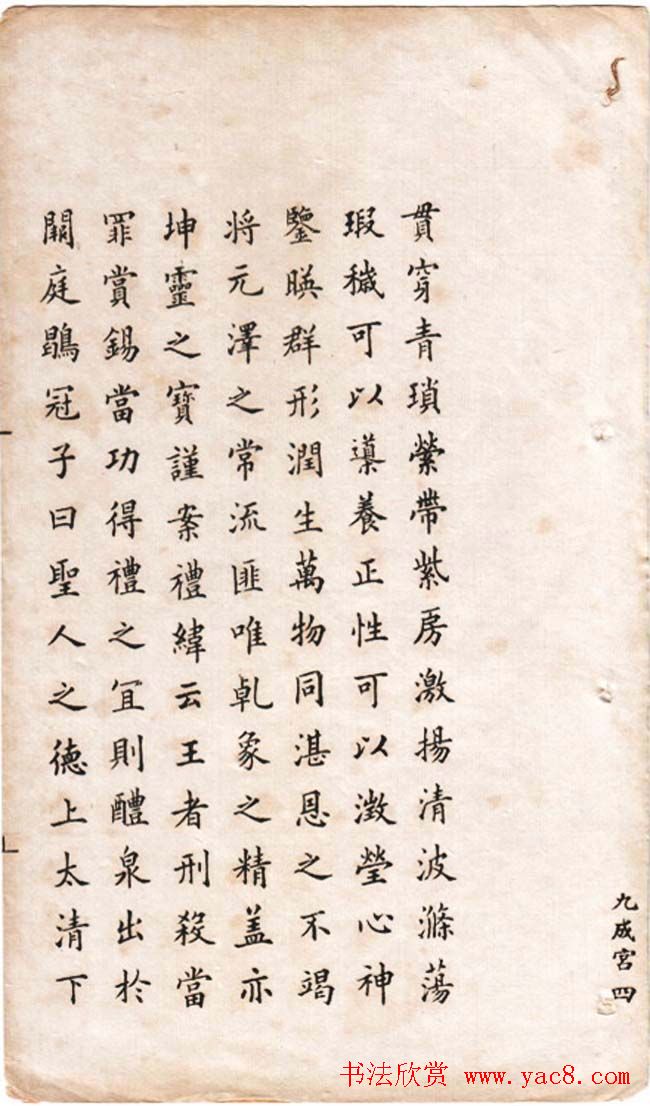 九成宮四
貫穿青瑣縈帶紫房激揚清波滌蕩
瑕穢可以導養正性可以澂瑩心神
鑒暎群形潤生萬物同湛恩之不竭
将元澤之常流匪唯乹象之精盖亦
坤靈之寶謹案禮緯云王者刑殺當
罪賞錫當功得禮之冝則醴泉出於
闕庭鶡冠子曰聖人之德上太清下
书法欣赏 www.yac8.com